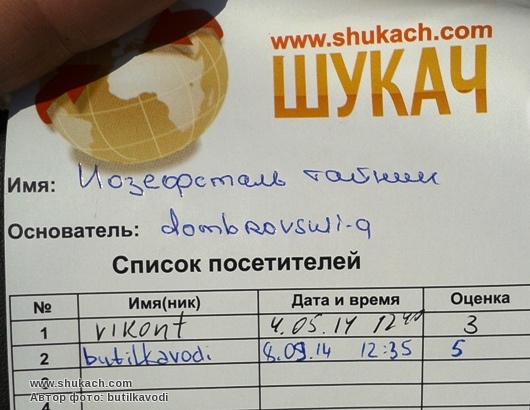 www.shukach.com
ШУКАЧ
Имя: Иозефсталь тайник
Основатель: dombrovskii-q
Список посетителей
№ Имя(ник) Дата и время Оценка
1 vikont 4.05.14 12⁴⁰ 3
2 butilkavodi 8.09.14 12:35 5
3
www.shukach.com
Автор фото: butilkavodi
4